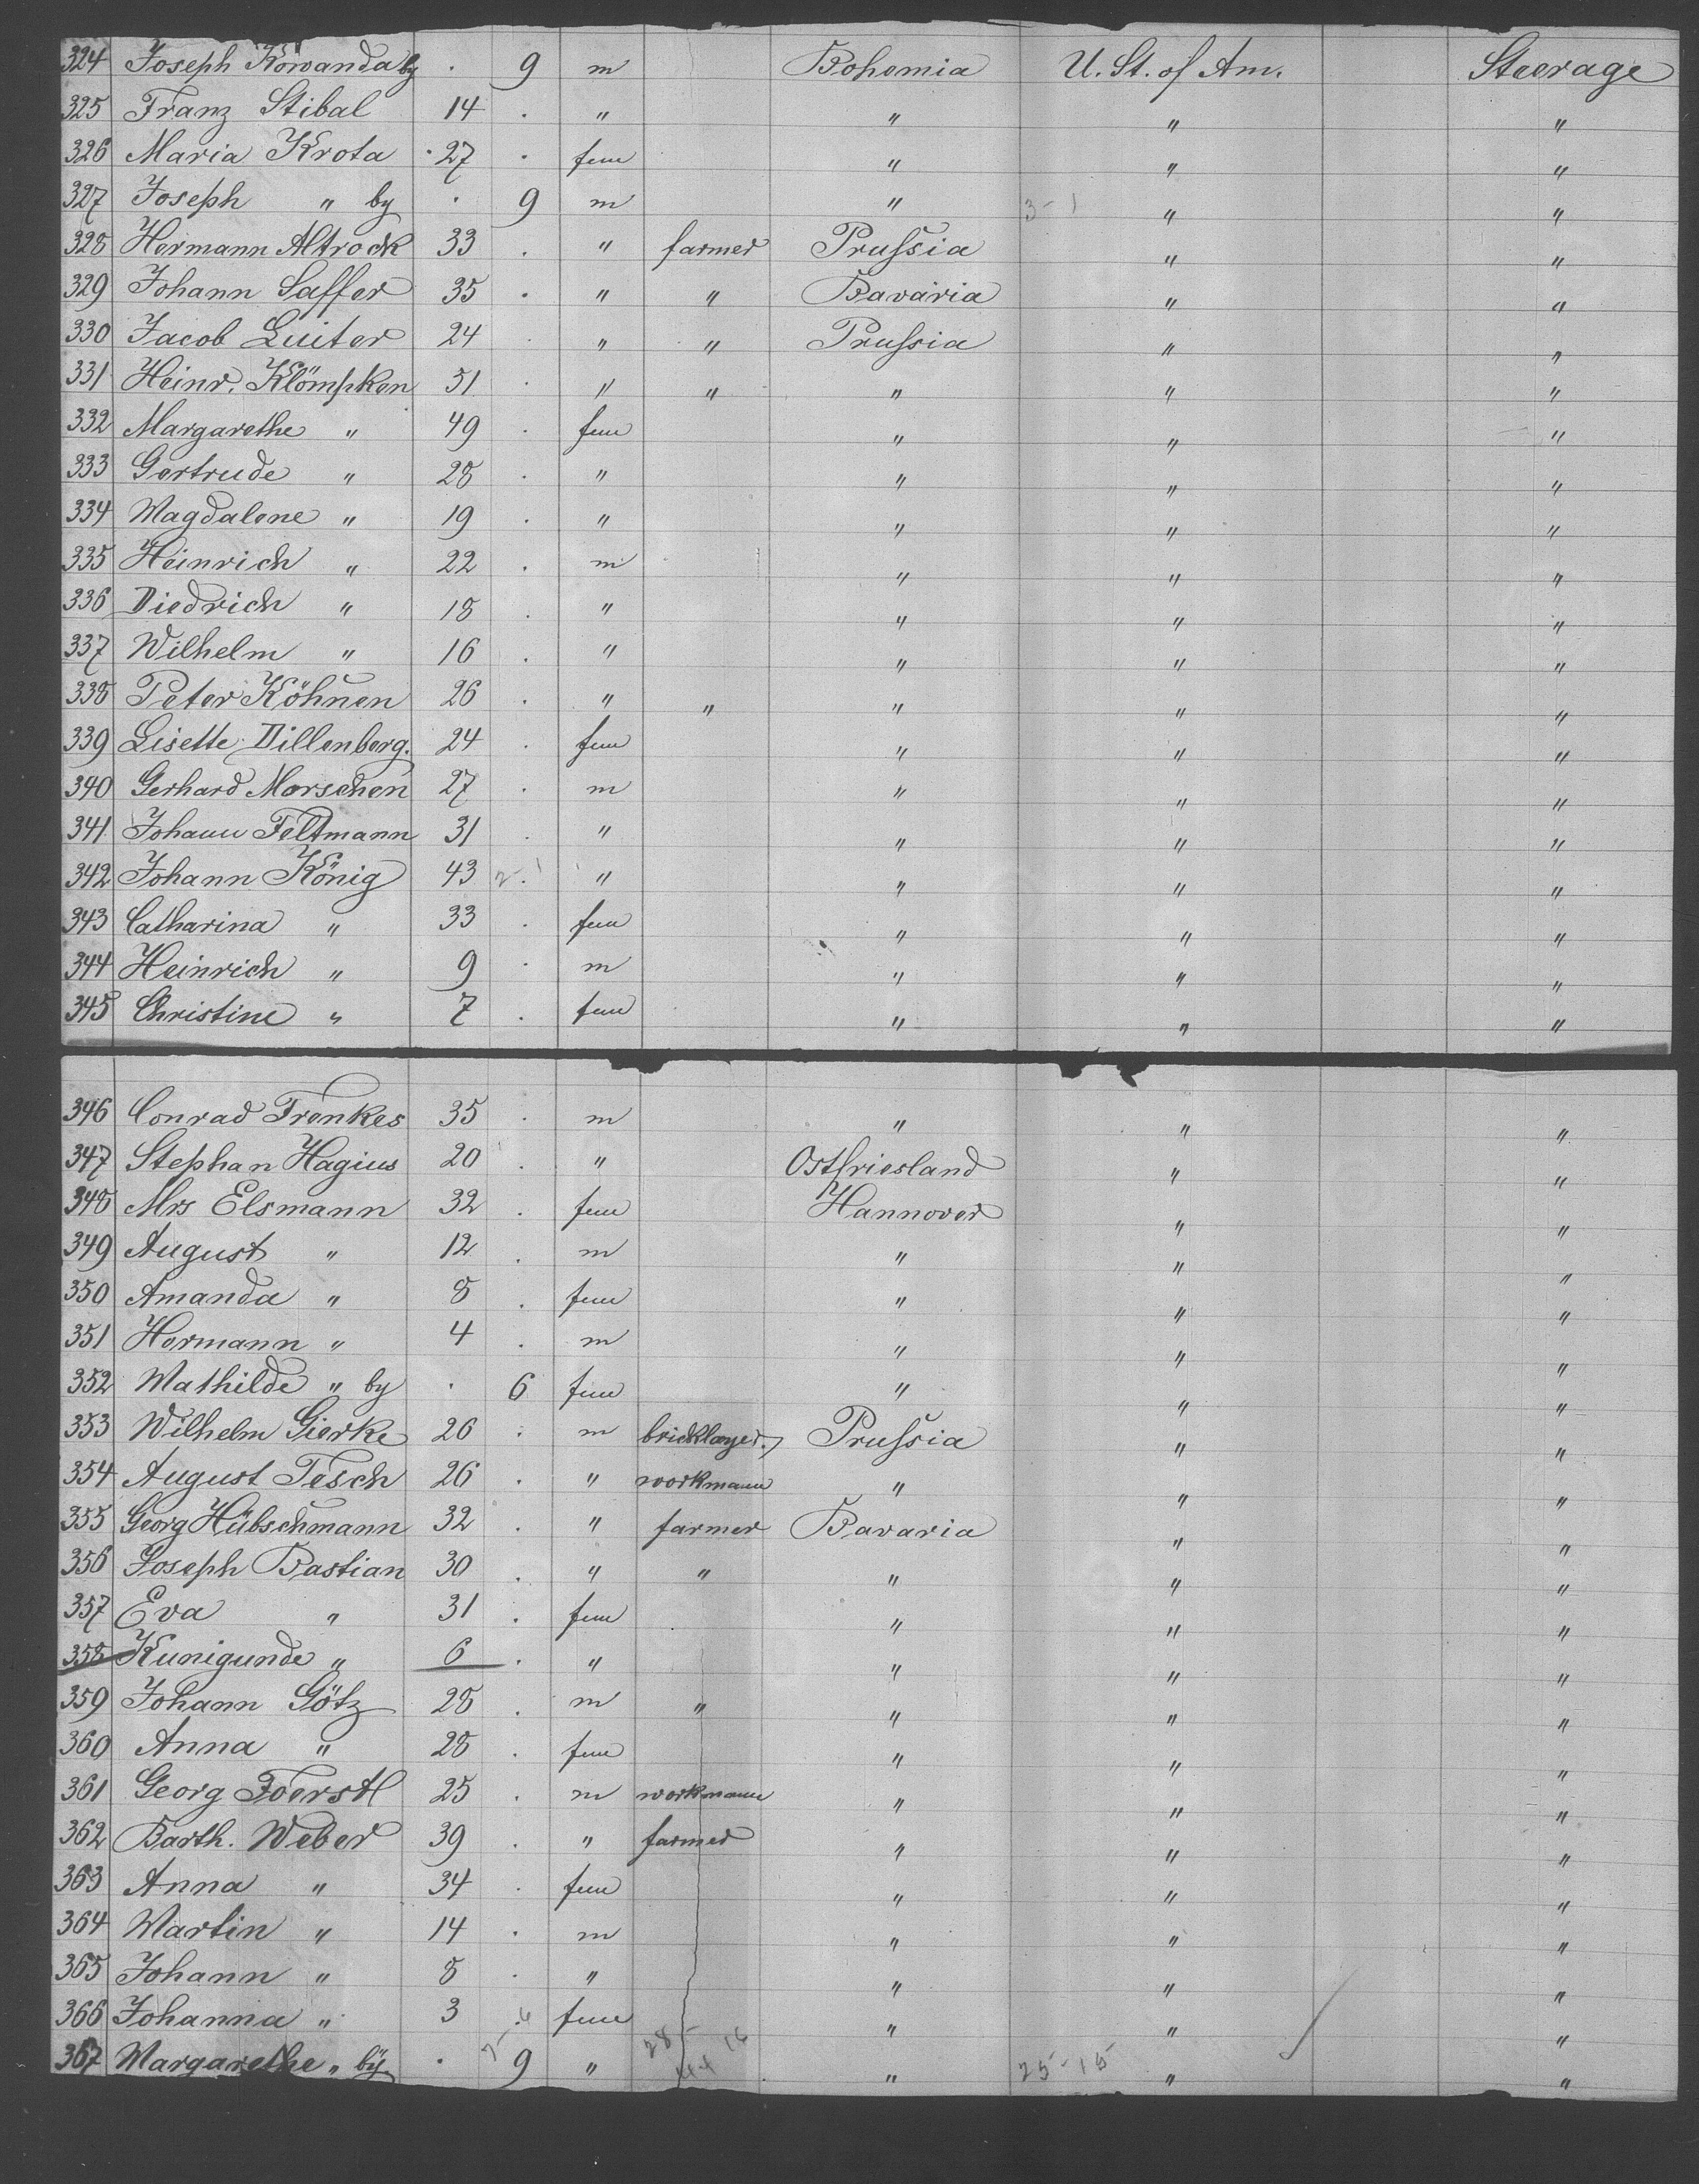 324 Joseph Kowanda by . 9 m Bohemia U. St. of Am. Steerage
325 Franz Stibal 14 . " " " "
326 Maria Krota 27 . fem " " "
327 Joseph " by . 9 m " 3-1 " "
328 Hermann Altrock 33 . " farmer Prussia " "
329 Johann Saffer 35 . " " Bavaria " "
330 Jacob Luiter 24 . " " Prussia " "
331 Heinr. Klömpken 51 . " " " " "
332 Margarethe " 49 . fem " " "
333 Gertrude " 28 . " " " "
334 Magdalene " 19 . " " " "
335 Heinrich " 22 . m " " "
336 Diedrich " 18 . " " " "
337 Wilhelm " 16 . " " " "
338 Peter Köhnen 26 . " " " " "
339 Lisette Dillenberg. 24 . fem " " "
340 Gerhard Morschen 27 . m " " "
341 Johann Feltmann 31 . " " " "
342 Johann König 43 2-1 " " " "
343 Catharina " 33 . fem " " "
344 Heinrich " 9 . m " " "
345 Christine " 7 . fem " " "
346 Conrad Frenkes 35 . m " " "
347 Stephan Hagius 20 . " Ostfriesland " "
348 Mrs Elsmann 32 . fem Hannover " "
349 August " 12 . m " " "
350 Amanda " 8 . fem " " "
351 Hermann " 4 . m " " "
352 Mathilde " by . 6 fem " " "
353 Wilhelm Gierke 26 . m bricklayer, Prussia " "
354 August Tesch 26 . " workmann " " "
355 Georg Hübschmann 32 . " farmer Bavaria " "
356 Joseph Bastian 30 . " " " " "
357 Eva " 31 . fem " " "
358 Kunigunde " 6 . " " " "
359 Johann Götz 28 . m " " " "
360 Anna " 28 . fem " " "
361 Georg Foerstl 25 . m workmann " " "
362 Barth. Weber 39 . " farmer " " "
363 Anna " 34 . fem " " "
364 Martin " 14 . m " " "
365 Johann " 8 . " " " "
366 Johanna " 3 . fem " " "
367 Margarethe " by . 9 " 28- 16 44 " 25-15 " "